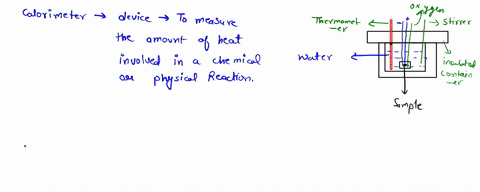 Calorimeter → device → To measure
the amount of heat
involved in a chemical
or physical Reaction.
Thermomet
-er
oxygen
Stirrer
water
insulated
contain
-er
Sample